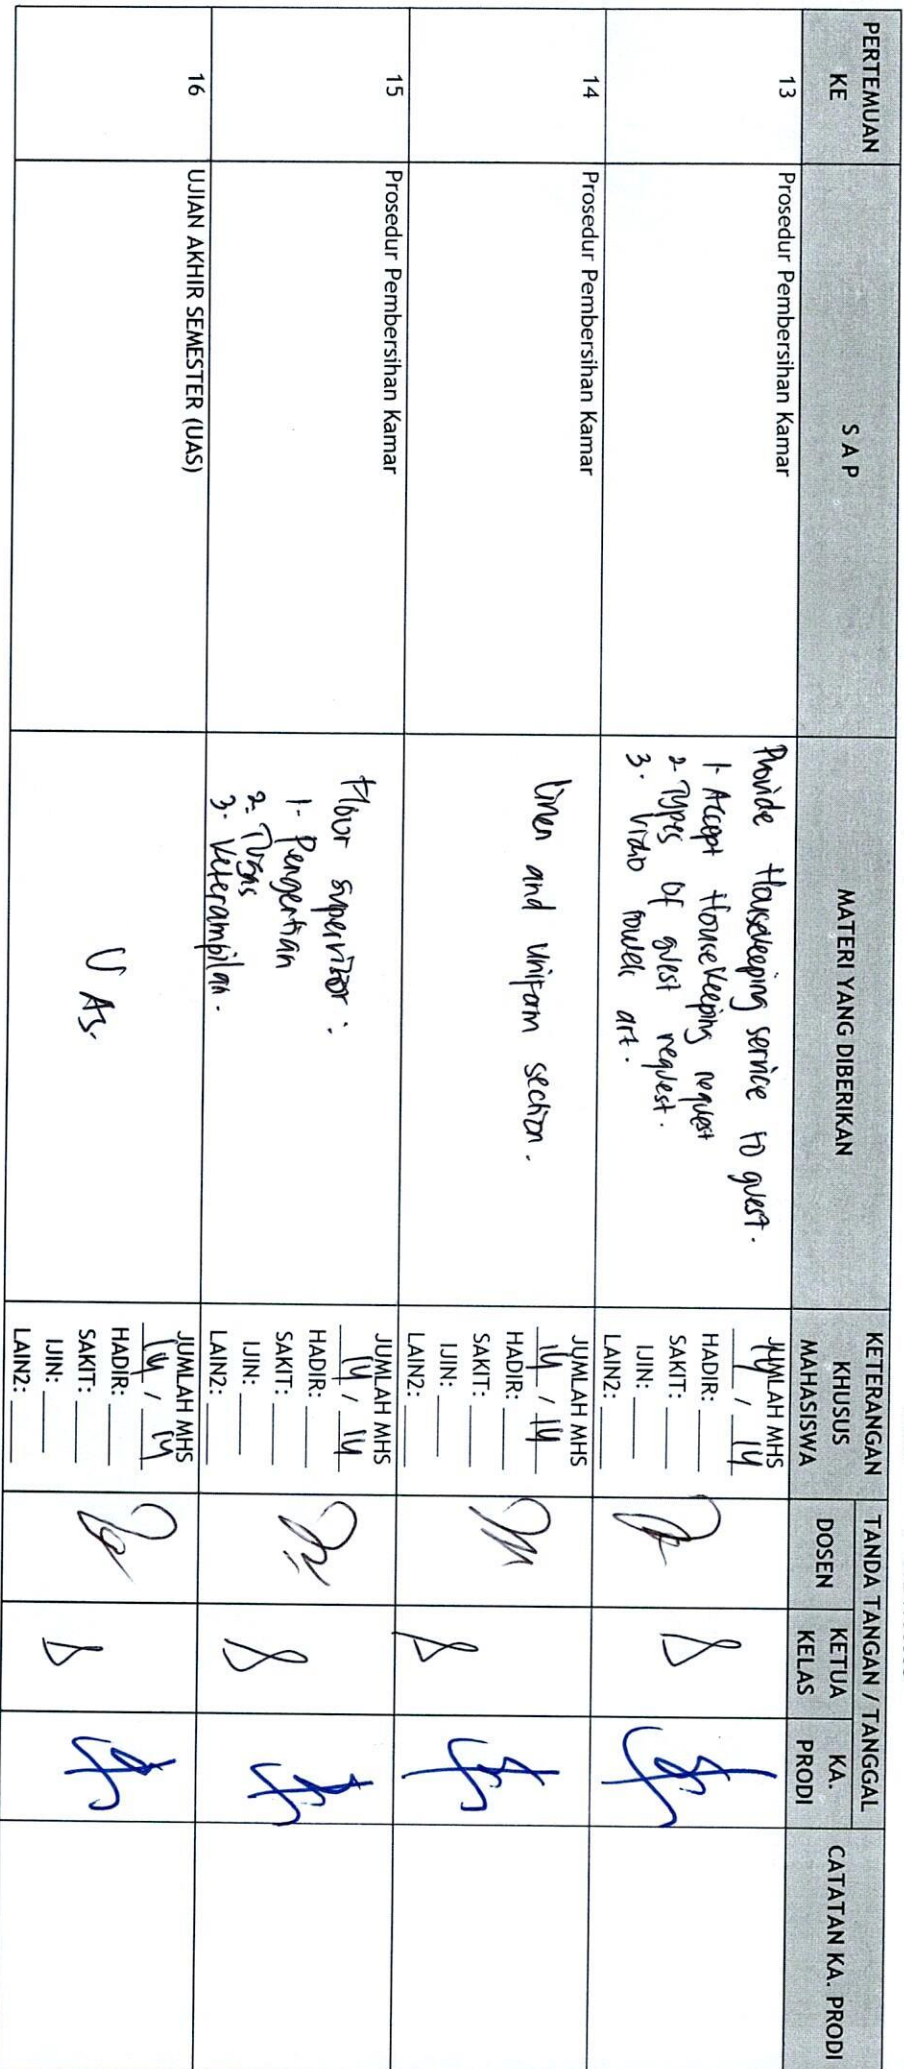 PERTEMUAN KE
S A P
MATERI YANG DIBERIKAN
KETERANGAN KHUSUS MAHASISWA
TANDA TANGAN / TANGGAL
DOSEN
KETUA KELAS
KA. PRODI
CATATAN KA. PRODI
13
Prosedur Pembersihan Kamar
Provide Housekeeping service to guest.
1. Accept Housekeeping request
2. Types of guest request.
3. Vidio towel art.
JUMLAH MHS
14 / 14
HADIR:
SAKIT:
IJIN:
LAIN2:
14
Prosedur Pembersihan Kamar
Linen and uniform section.
JUMLAH MHS
14 / 14
HADIR:
SAKIT:
IJIN:
LAIN2:
15
Prosedur Pembersihan Kamar
Floor supervisor :
1. Pengertian
2. Tugas
3. Keterampilan.
JUMLAH MHS
14 / 14
HADIR:
SAKIT:
IJIN:
LAIN2:
16
UJIAN AKHIR SEMESTER (UAS)
UAS.
JUMLAH MHS
14 / 14
HADIR:
SAKIT:
IJIN:
LAIN2: